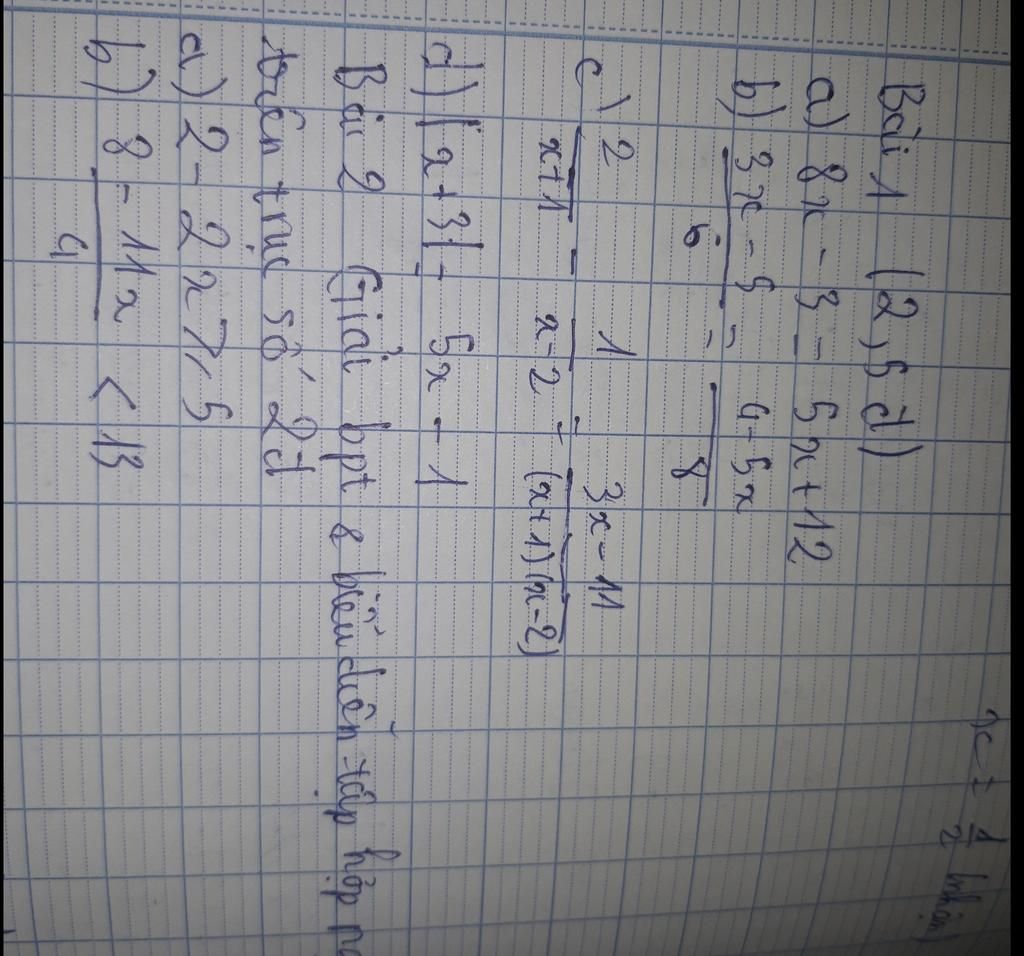 x = 1/2 (nhận)
Bài 1 (2,5 đ)
a) 8x - 3 = 5x + 12
b) (3x - 5)/6 = (4 - 5x)/8
c) 2/(x+1) - 1/(x-2) = (3x - 11)/((x+1)(x-2))
d) |x + 3| = 5x - 1
Bài 2 Giải bpt & biểu diễn tập hợp
trên trục số 2đ
a) 2 - 2x ≥ 5
b) (8 - 11x)/4 < 13